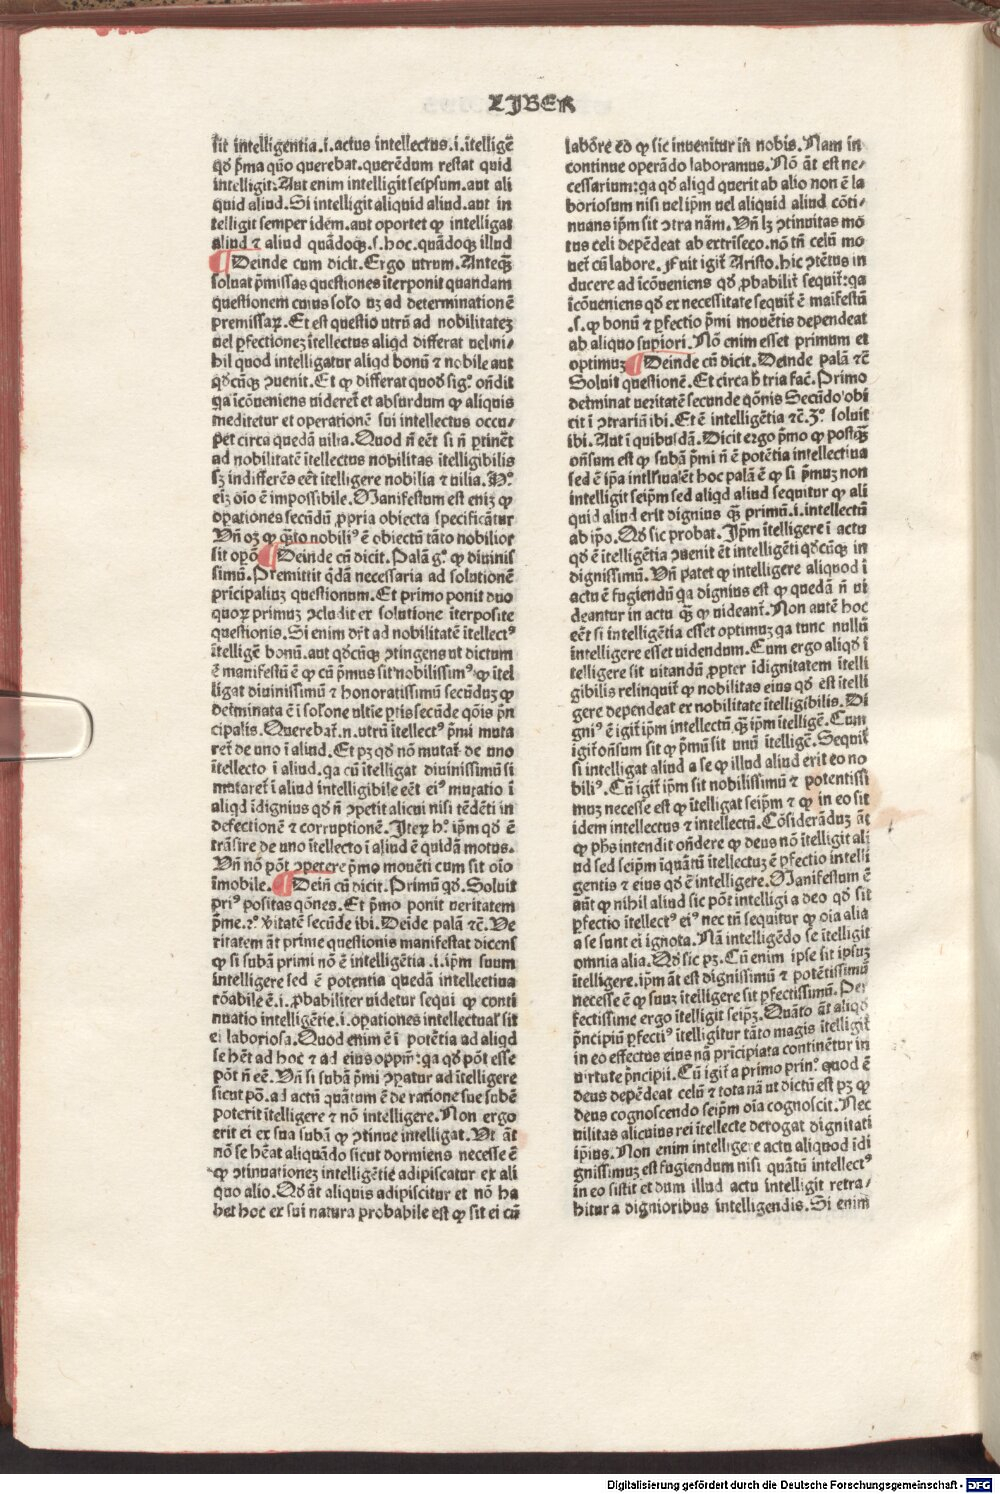 LIBER
sit intelligentia.i.actus intellectus.i.ĩtelligẽ
qđ p̃ma quo querebat.querẽdum restat quid
intelligit:Aut enim intelligit seipsum.aut ali
quid aliud.Si intelligit aliquid aliud.aut in
telligit semper idem.aut oportet ꝙ intelligat
aliud ⁊ aliud quãdoqꝫ.s.hoc.quãdoqꝫ illud
¶Deinde cum dicit.Ergo utrum.Anteqꝫ̃
soluat p̃missas questiones ĩterponit quandam
questionem cuius solo uꝫ ad determinationẽ
premissaꝝ.Et est questio utrũ ad nobilitateꝫ
uel ꝑfectioneꝫ ĩtellectus aliqđ differat uel ni/
hil quod intelligatur aliqđ bonũ ⁊ nobile aut
qđcũqꝫ ꝯuenit.Et ꝙ differat quod sigͦ.oñdit
qa ĩcõueniens uideret̃ et absurdum ꝙ aliquis
meditetur et operationẽ sui intellectus occu/
pet circa quedã uilia.Quod ñ eẽt si ñ ꝑtinẽt
ad nobilitatẽ ĩtellectus nobilitas ĩtelligibilis
sꝫ indifferẽs eẽt ĩtelligere nobilia ⁊ uilia.
eiꝫ oĩo ẽ impossibile.Manifestum est eniꝫ ꝙ
oꝑationes secũdũ ꝓpria obiecta specificãtur
Vñ oꝫ ꝙ q̃to nobiliꝰ ẽ obiectũ tãto nobilior
sit opõ ¶Deinde cũ dicit.Palã gͦ.ꝙ diuinis
simũ.Premittit q̃dã necessaria ad solutionẽ
pricipaliuꝫ questionum.Et primo ponit duo
quoꝝ primuꝫ ꝯcludit ex solutione ĩterposite
questionis.Si enim dr̃t ad nobilitatẽ ĩtellectꝰ
ĩtelligẽ bonũ.aut qđcũqꝫ ꝯtingens ut dictum
ẽ manifestũ ẽ ꝙ cũ p̃mus sit nobilissimꝰ ꝙ ĩtel
ligat diuinissimũ ⁊ honoratissimũ secũduꝫ ꝙ
det̃minata ẽ ĩ solõne ultie ꝑtis secũde qõis p̃n
cipalis.Querebat̃.n.utrũ ĩtellectꝰ p̃mi muta
ret̃ de uno ĩ aliud.Et pꝫ qđ nõ mutat̃ de uno
ĩtellecto ĩ aliud.qa cũ ĩtelligat diuinissimũ si
mutaret̃ ĩ aliud intelligibile eẽt eiꝰ mutatio ĩ
aliqđ ĩdignius qđ ñ ꝯpetit alicui nisi tẽdẽti in
defectionẽ ⁊ corruptionẽ.Iteꝝ hͦ.ip̃m qđ ẽ
trãsire de uno ĩtellecto ĩ aliud ẽ quidã motus.
Vñ nõ põt ꝯpetere p̃mo mouẽti cum sit oĩo
ĩmobile.¶Deiñ cũ dicit.Primũ qđ.Soluit
priꝰ positas qõnes.Et p̃mo ponit ueritatem
p̃me.2ͦ.ṽitatẽ secũde ibi.Deĩde palã ⁊c̃.Ve
ritatem ãt prime questionis manifestat dicens
ꝙ si subã primi nõ ẽ intelligẽtia.i.ip̃m suum
intelligere sed ẽ potentia quedã intellectiua
rõabile ẽ.i.ꝓbabiliter uidetur sequi ꝙ conti
nuatio intelligẽtie.i.oꝑationes intellectual̃ sit
ei laboriosa.Quod enim ẽ ĩ potẽtia ad aliqđ
se hẽt ad hoc ⁊ ad eius oppm̃:qa qđ põt esse
põt ñ eẽ.Vñ si subã p̃mi ꝯꝑatur ad ĩtelligere
sicut põ.ad actũ quãtum ẽ de ratione sue subẽ
poterit ĩtelligere ⁊ nõ intelligere.Non ergo
erit ei ex sua subã ꝙ ꝯtinue intelligat.Vt ãt
nõ se hẽat aliquãdo sicut dormiens necesse ẽ
ꝙ ꝯtinuationeꝫ intelligẽtie adipiscatur ex ali
quo alio.Qđ ãt aliquis adipiscitur et nõ ha
bet hoc ex sui natura probabile est ꝙ sit ei cũ
labõre eo ꝙ sic inuenitur in nobis.Nam in
continue operãdo laboramus.Nõ ãt est ne/
cessarium:qa qđ aliqđ querit ab alio non ẽ la
boriosum nisi uel ip̃m uel aliquid aliud cõti/
nuans ip̃m sit ꝯtra nãm.Vñ lꝫ ꝯtinuitas mõ
tus celi depẽdeat ab extrĩseco.nõ tñ celũ mo
uet̃ cũ labore.Fuit igit̃ Aristo.hic ꝯtẽtus in
ducere ad ĩcõueniens qđ ꝓbabilit̃ sequit̃:qa
ĩcõueniens qđ ex necessitate sequit̃ ẽ maĩfestũ
.s.ꝙ bonũ ⁊ ꝑfectio p̃mi mouẽtis dependeat
ab aliquo supiori.Nõ enim esset primum et
optimuꝫ ¶Deinde cũ dicit.Deinde palã ⁊c̃
Soluit questionẽ.Et circa h̃ tria fac̃.Primo
det̃minat ueritatẽ secunde qõnis Secũdo obi
cit ĩ ꝯtrariũ ibi.Et ẽ intelligẽtia ⁊c̃.3ͦ.soluit
ibi.Aut ĩ quibusdã.Dicit ergo p̃mo ꝙ postqꝫ̃
oñsum est ꝙ subã p̃mi ñ ẽ potẽtia intellectiua
sed ẽ ip̃a hoc palã ẽ ꝙ si p̃muꝫ non
intelligit seip̃m sed aliqđ aliud sequitur ꝙ ali
quid aliud erit dignius qꝫ̃ primũ.i.intellectũ
ab ip̃o.Qđ sic probat.Ip̃m ĩtelligere ĩ actu
qđ ẽ ĩtelligẽtia ꝯuenit ẽt intelligẽti qđcũqꝫ in
dignissimũ.Vñ patet ꝙ intelligere aliquod ĩ
actu ẽ fugiendũ qa dignius est ꝙ quedã ñ ui
deantur in actu qꝫ̃ ꝙ uideant̃.Non autẽ hoc
eẽt si intelligẽtia esset optimuꝫ qa tunc nullũ
intelligere esset uidendum.Cum ergo aliqđ ĩ
telligere sit uitandũ ꝓpter ĩdignitatem ĩtelli
gibilis relinquit̃ ꝙ nobilitas eius qđ est ĩtelli
gere dependeat ex nobilitate ĩtelligibilis.Di
gniꝰ ẽ igit̃ ip̃m intellectũ qꝫ̃ ip̃m ĩtelligẽ.Cum
igit̃ oñsum sit ꝙ p̃mũ sit unũ ĩtelligẽ.Sequit̃
si intelligat aliud a se ꝙ illud aliud erit eo no
biliꝰ.Cũ igit̃ ip̃m sit nobilissimũ ⁊ potentissi
muꝫ necesse est ꝙ ĩtelligat seip̃m ⁊ ꝙ in eo sit
idem intellectus ⁊ intellectũ.Cõsiderãduꝫ ãt
ꝙ ph̃s intendit oñdere ꝙ deus nõ ĩtelligit ali
ud sed seip̃m ĩquãtũ ĩtellectuꝫ ẽ ꝑfectio intelli
gentis ⁊ eius qđ ẽ intelligere.Manifestum ẽ
aũt ꝙ nihil aliud sic põt intelligi a deo qđ sit
ꝑfectio ĩtellectꝰ eiꝰ nec tñ sequitur ꝙ oĩa alia
a se sunt ei ignota.Nã intelligẽdo se ĩtelligit
omnia alia.Qđ sic pꝫ.Cũ enim ipse sit ipsuꝫ
ĩtelligere.ip̃m ãt est dignissimũ ⁊ potẽtissimũ
necesse ẽ ꝙ suuꝫ ĩtelligere sit ꝑfectissimũ.Per
fectissime ergo ĩtelligit seip̃ꝫ.Quãto ãt aliqđ
p̃ncipiũ ꝑfectiꝰ ĩtelligitur tãto magis ĩtelligit̃
in eo effectus eius nã prĩcipiata continẽtur in
uirtute p̃ncipii.Cũ igit̃ a primo prinͦ.quod ẽ
deus depẽdeat celũ ⁊ tota nã ut dictũ est pꝫ ꝙ
deus cognoscendo seip̃m oĩa cognoscit.Nec
uilitas alicuius rei ĩtellecte derogat dignitati
ip̃ius.Non enim intelligere actu aliquod ĩdi
gnissimuꝫ est fugiendum nisi quãtũ intellectꝰ
in eo sistit et dum illud actu intelligit retra/
hitur a dignioribus intelligendis.Si enim
Digitalisierung gefördert durch die Deutsche Forschungsgemeinschaft - DFG